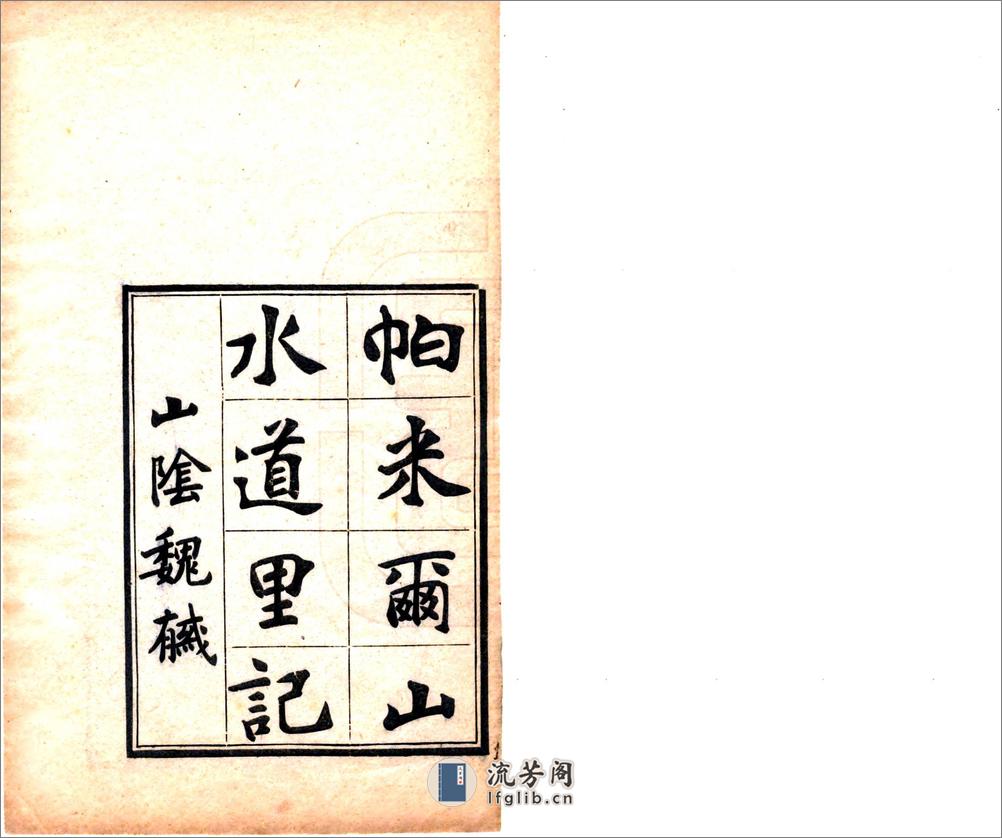 帕米爾山
水道里記
山陰魏戫
流芳阁
lfglib.cn